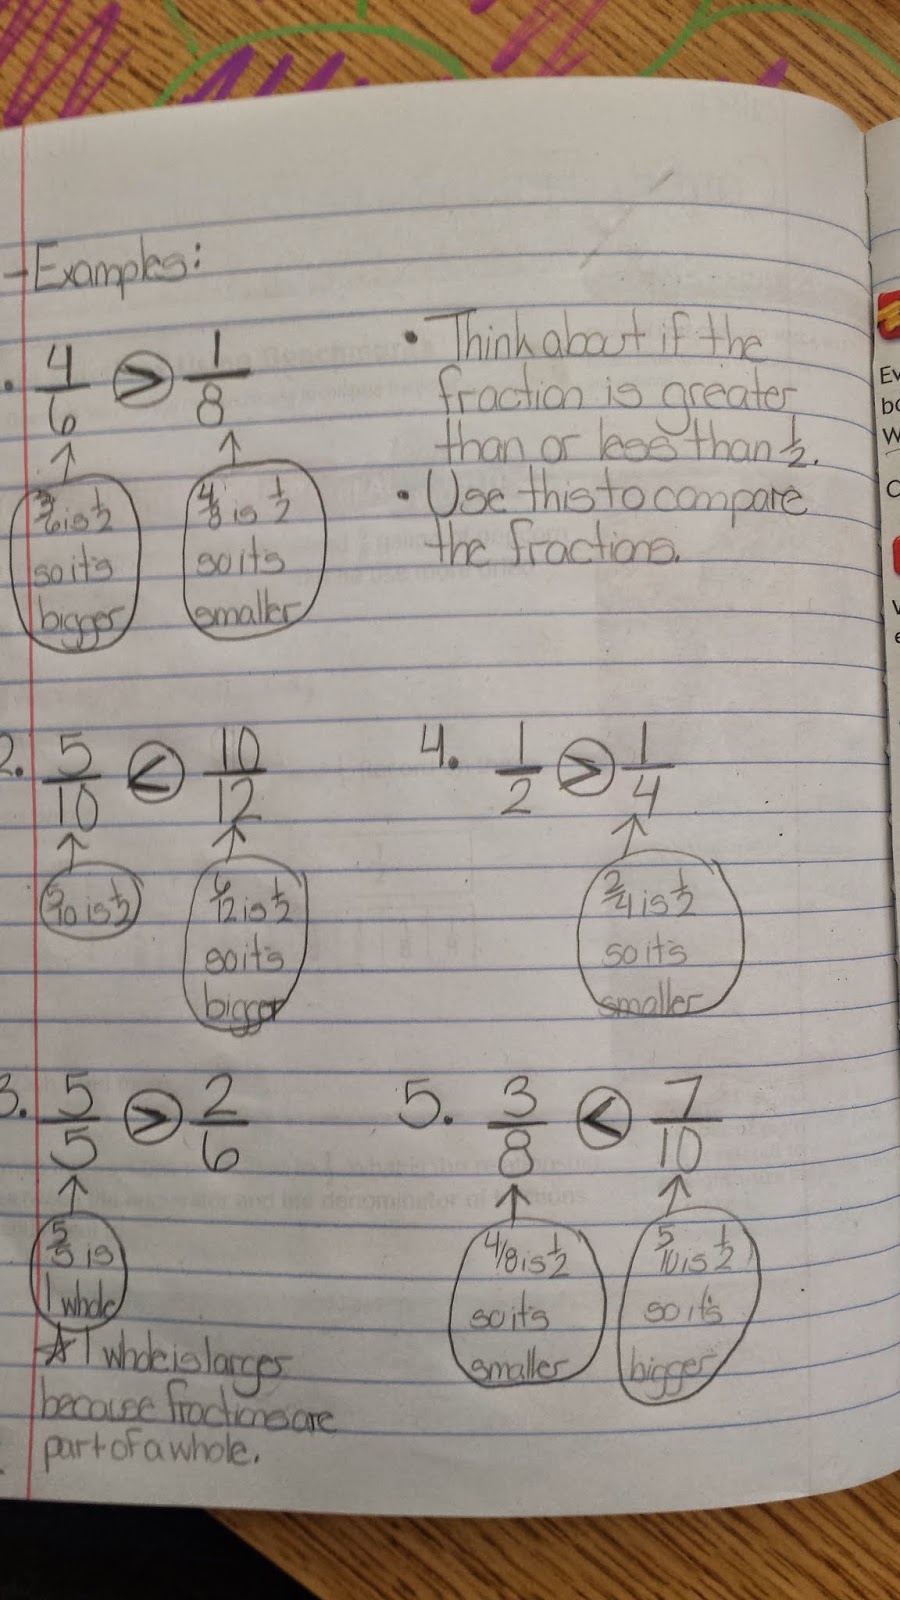 -Examples:
. 4/6 > 1/8
3/6 is 1/2
so it's
bigger
4/8 is 1/2
so it's
smaller
• Think about if the
fraction is greater
than or less than 1/2.
• Use this to compare
the fractions.
2. 5/10 < 10/12
5/10 is 1/2
6/12 is 1/2
so it's
bigger
4. 1/2 > 1/4
2/4 is 1/2
so it's
smaller
3. 5/5 > 2/6
5/5 is
1 whole
☆ 1 whole is larges
because fractions are
part of a whole.
5. 3/8 < 7/10
4/8 is 1/2
so it's
smaller
5/10 is 1/2
so it's
bigger